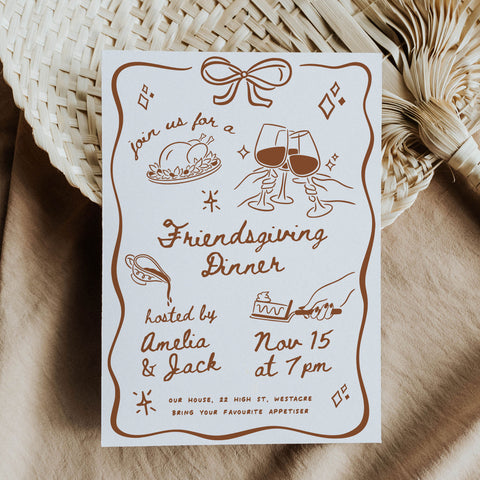 join us for a
Friendsgiving
Dinner
hosted by
Amelia
& Jack
Nov 15
at 7pm
OUR HOUSE, 22 HIGH ST, WESTACRE
BRING YOUR FAVOURITE APPETISER